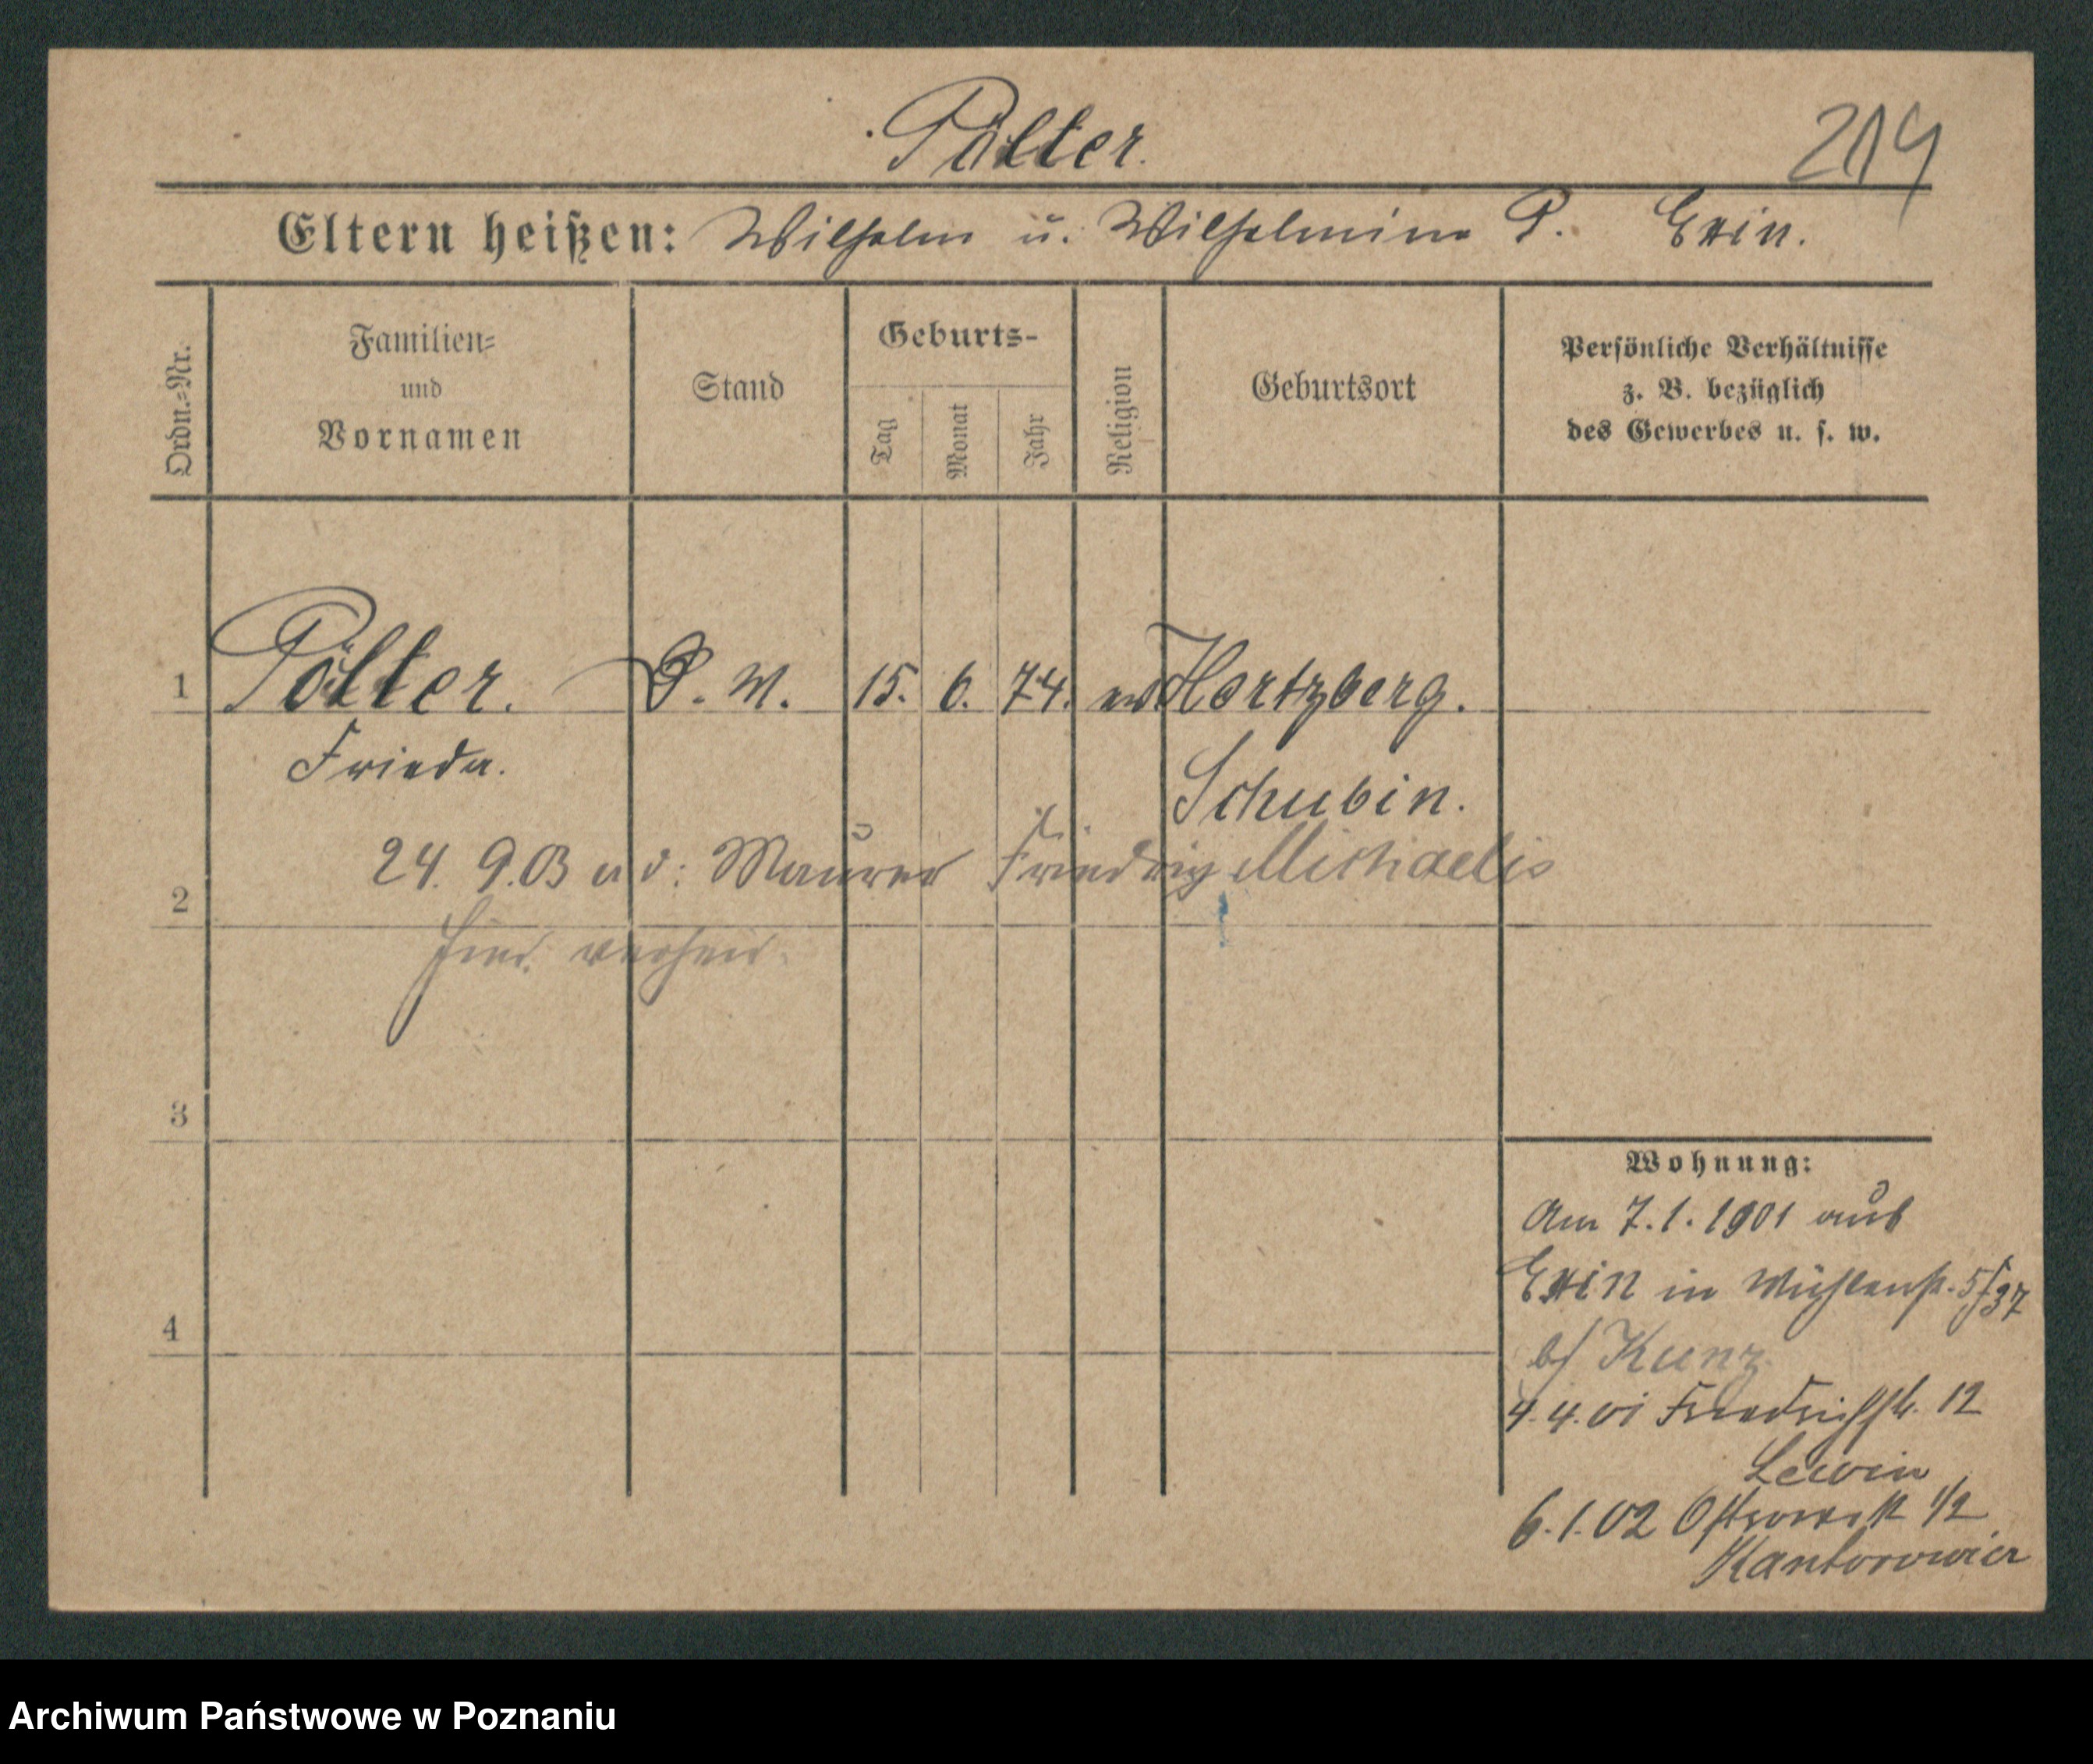 Pölter.
214
Eltern heißen: Wilhelm u. Wilhelmine P. Exin.
Ordn.=Nr.
Familien=
und
Vornamen
Stand
Geburts-
Tag
Monat
Jahr
Religion
Geburtsort
Persönliche Verhältnisse
z. B. bezüglich
des Gewerbes u. s. w.
1 Pölter. D. M. 15. 6. 74. ev Hertzberg.
Frieda. Schubin.
24. 9. 03 a d: Maurer Friedrich Michaelis
2
hier verheir.
3
Wohnung:
Am 7.1.1901 aus
Exin in Mühlenst. 5/37
b/ Kunz
4
4.4.01 Friedrichstr. 12
Lewin
6.1.02 1/2
Kantorowicz
Archiwum Państwowe w Poznaniu